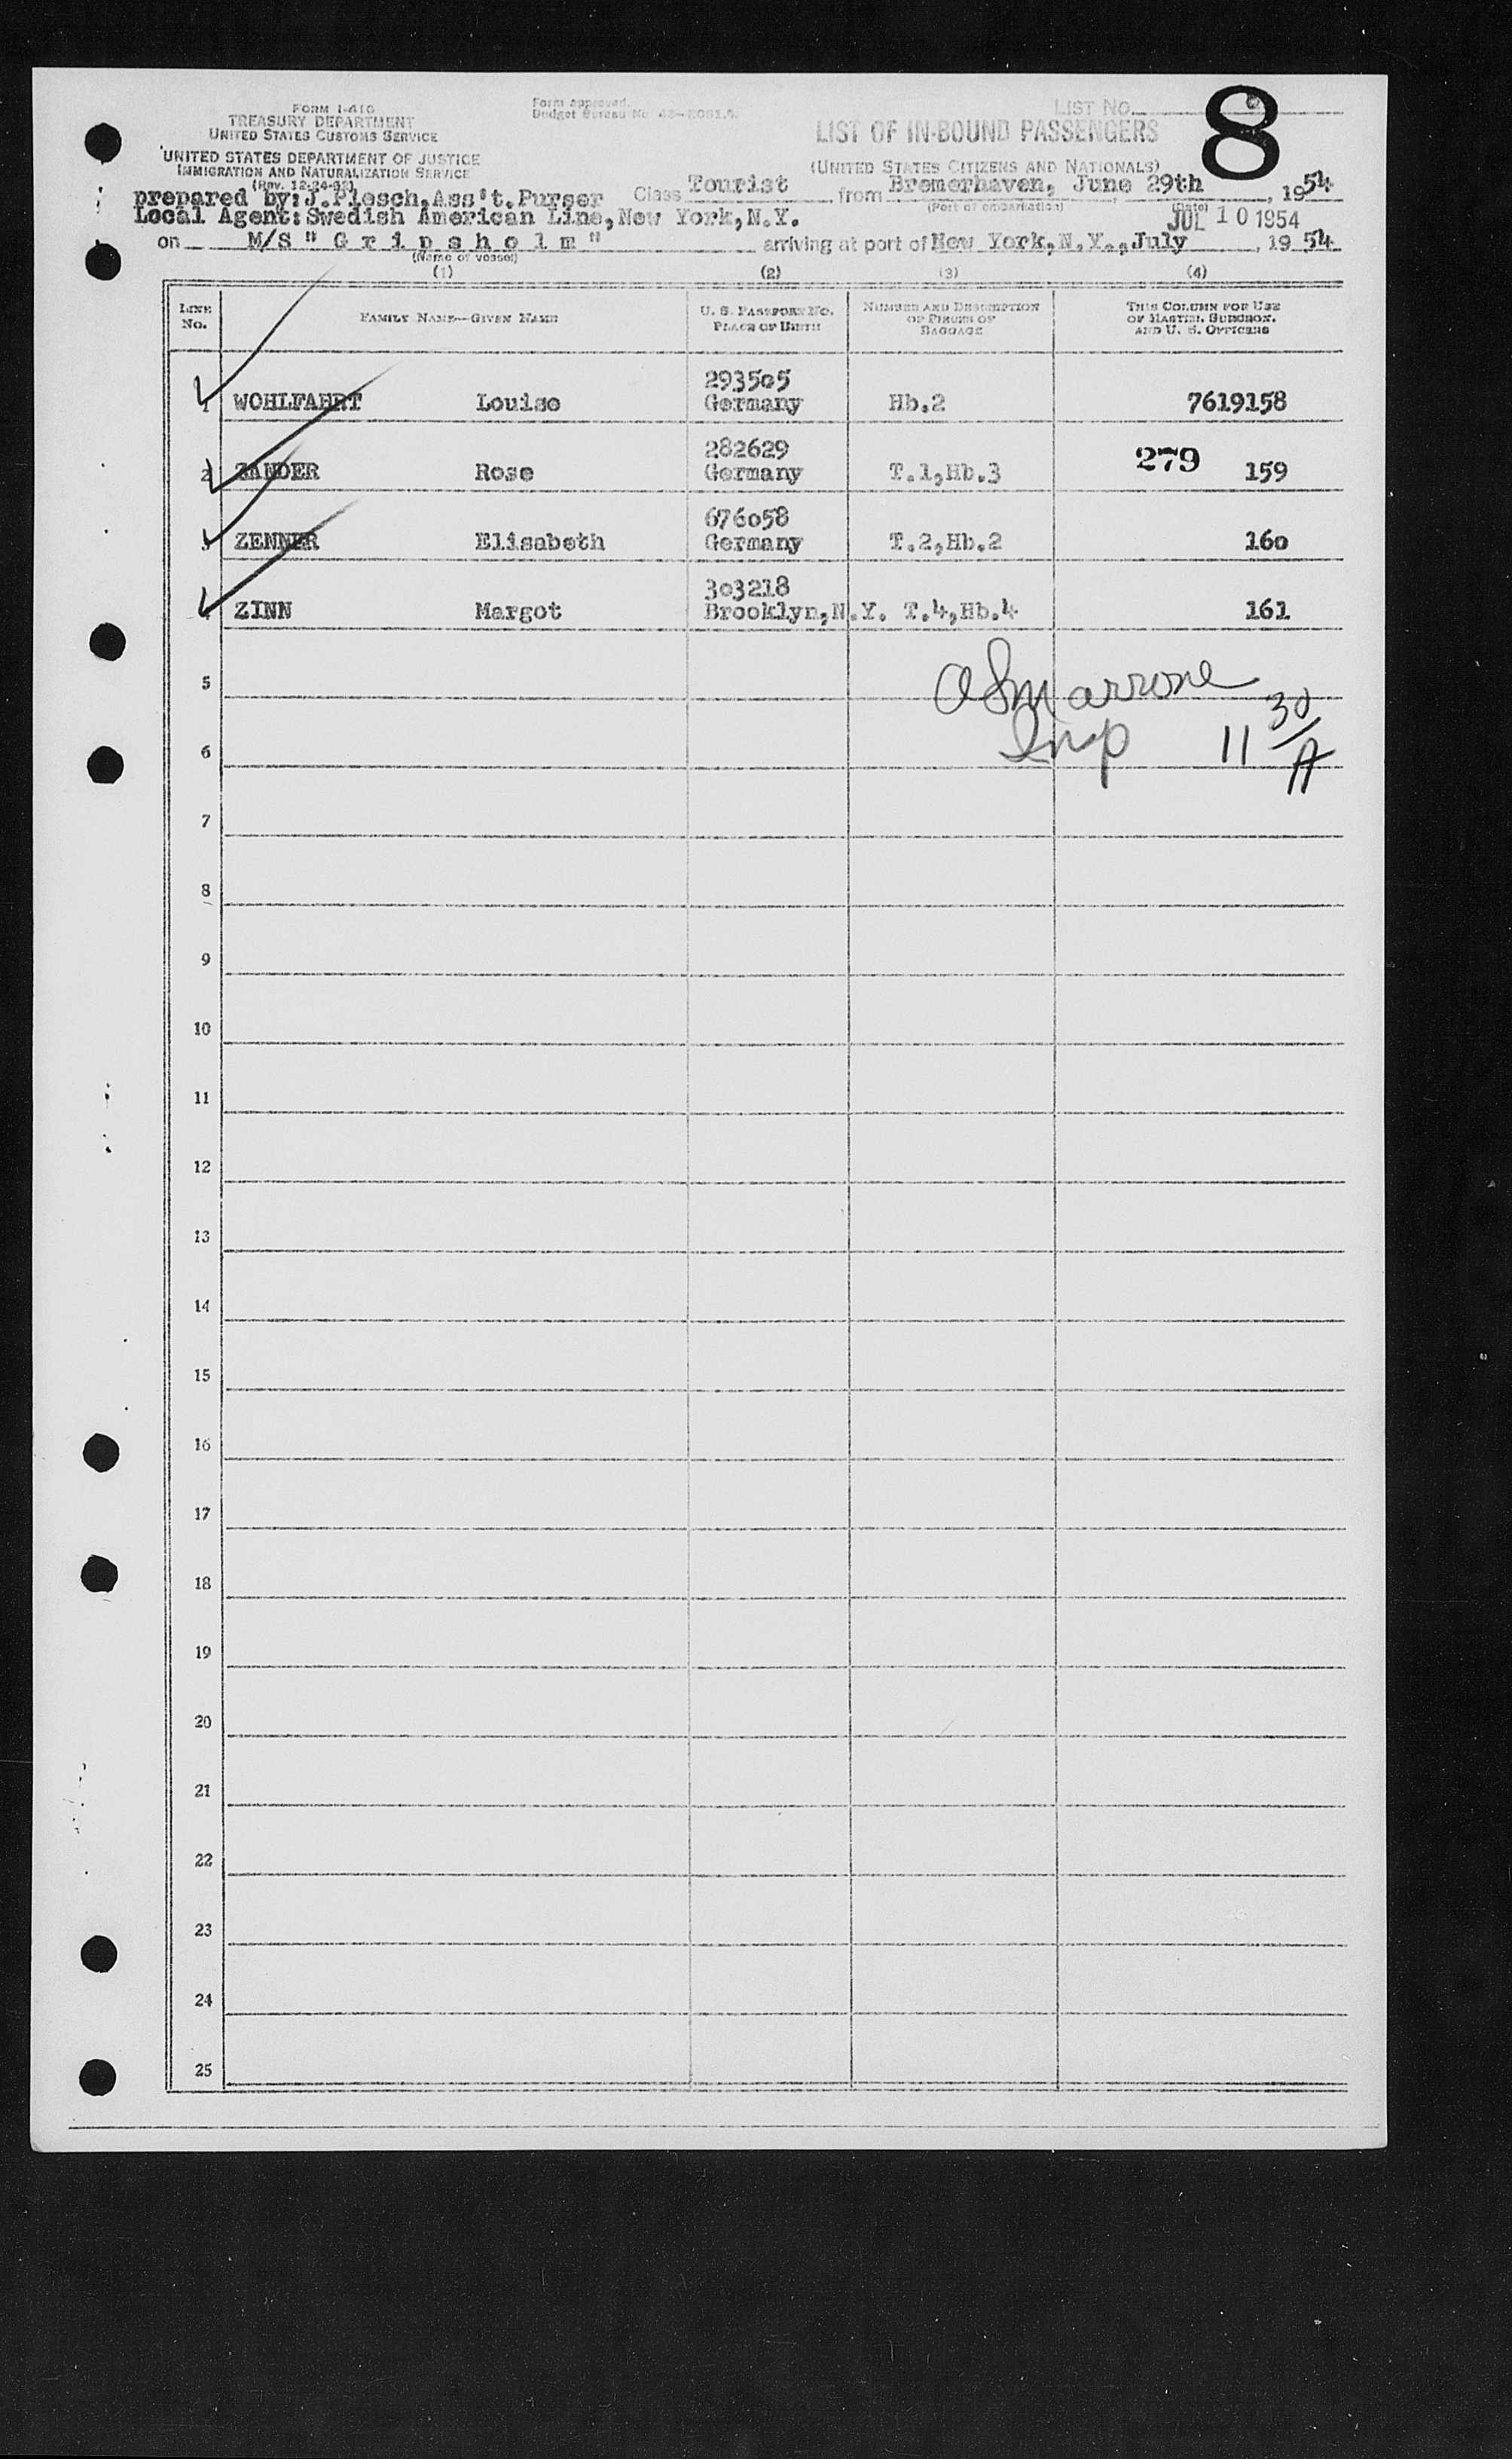 FORM I-416
TREASURY DEPARTMENT
UNITED STATES CUSTOMS SERVICE
UNITED STATES DEPARTMENT OF JUSTICE
IMMIGRATION AND NATURALIZATION SERVICE
(Rev. 12-24-52)
Form approved.
Budget Bureau No.
LIST NO. 8
LIST OF IN-BOUND PASSENGERS
(UNITED STATES CITIZENS AND NATIONALS)
prepared by: J.Plesch, Ass't. Purser Class Tourist from Bremerhaven, June 29th, 1954
(Port of embarkation) (Date)
Local Agent: Swedish American Line, New York, N.Y. JUL 10 1954
on M/S " G r i p s h o l m " arriving at port of New York, N.Y., July, 19 54
(Name of vessel)
(1) (2) (3) (4)
LINE No. FAMILY NAME—GIVEN NAME U. S. PASSPORT NO. PLACE OF BIRTH NUMBER AND DESCRIPTION OF PIECES OF BAGGAGE THIS COLUMN FOR USE OF MASTER, SURGEON, AND U. S. OFFICERS
293505
1 WOHLFAHRT Louise Germany Hb.2 7619158
282629
2 ZANDER Rose Germany T.1,Hb.3 279 159
676058
3 ZENNER Elisabeth Germany T.2,Hb.2 160
303218
4 ZINN Margot Brooklyn, N.Y. T.4,Hb.4 161
5
6 Insp 11 30/A
7
8
9
10
11
12
13
14
15
16
17
18
19
20
21
22
23
24
25